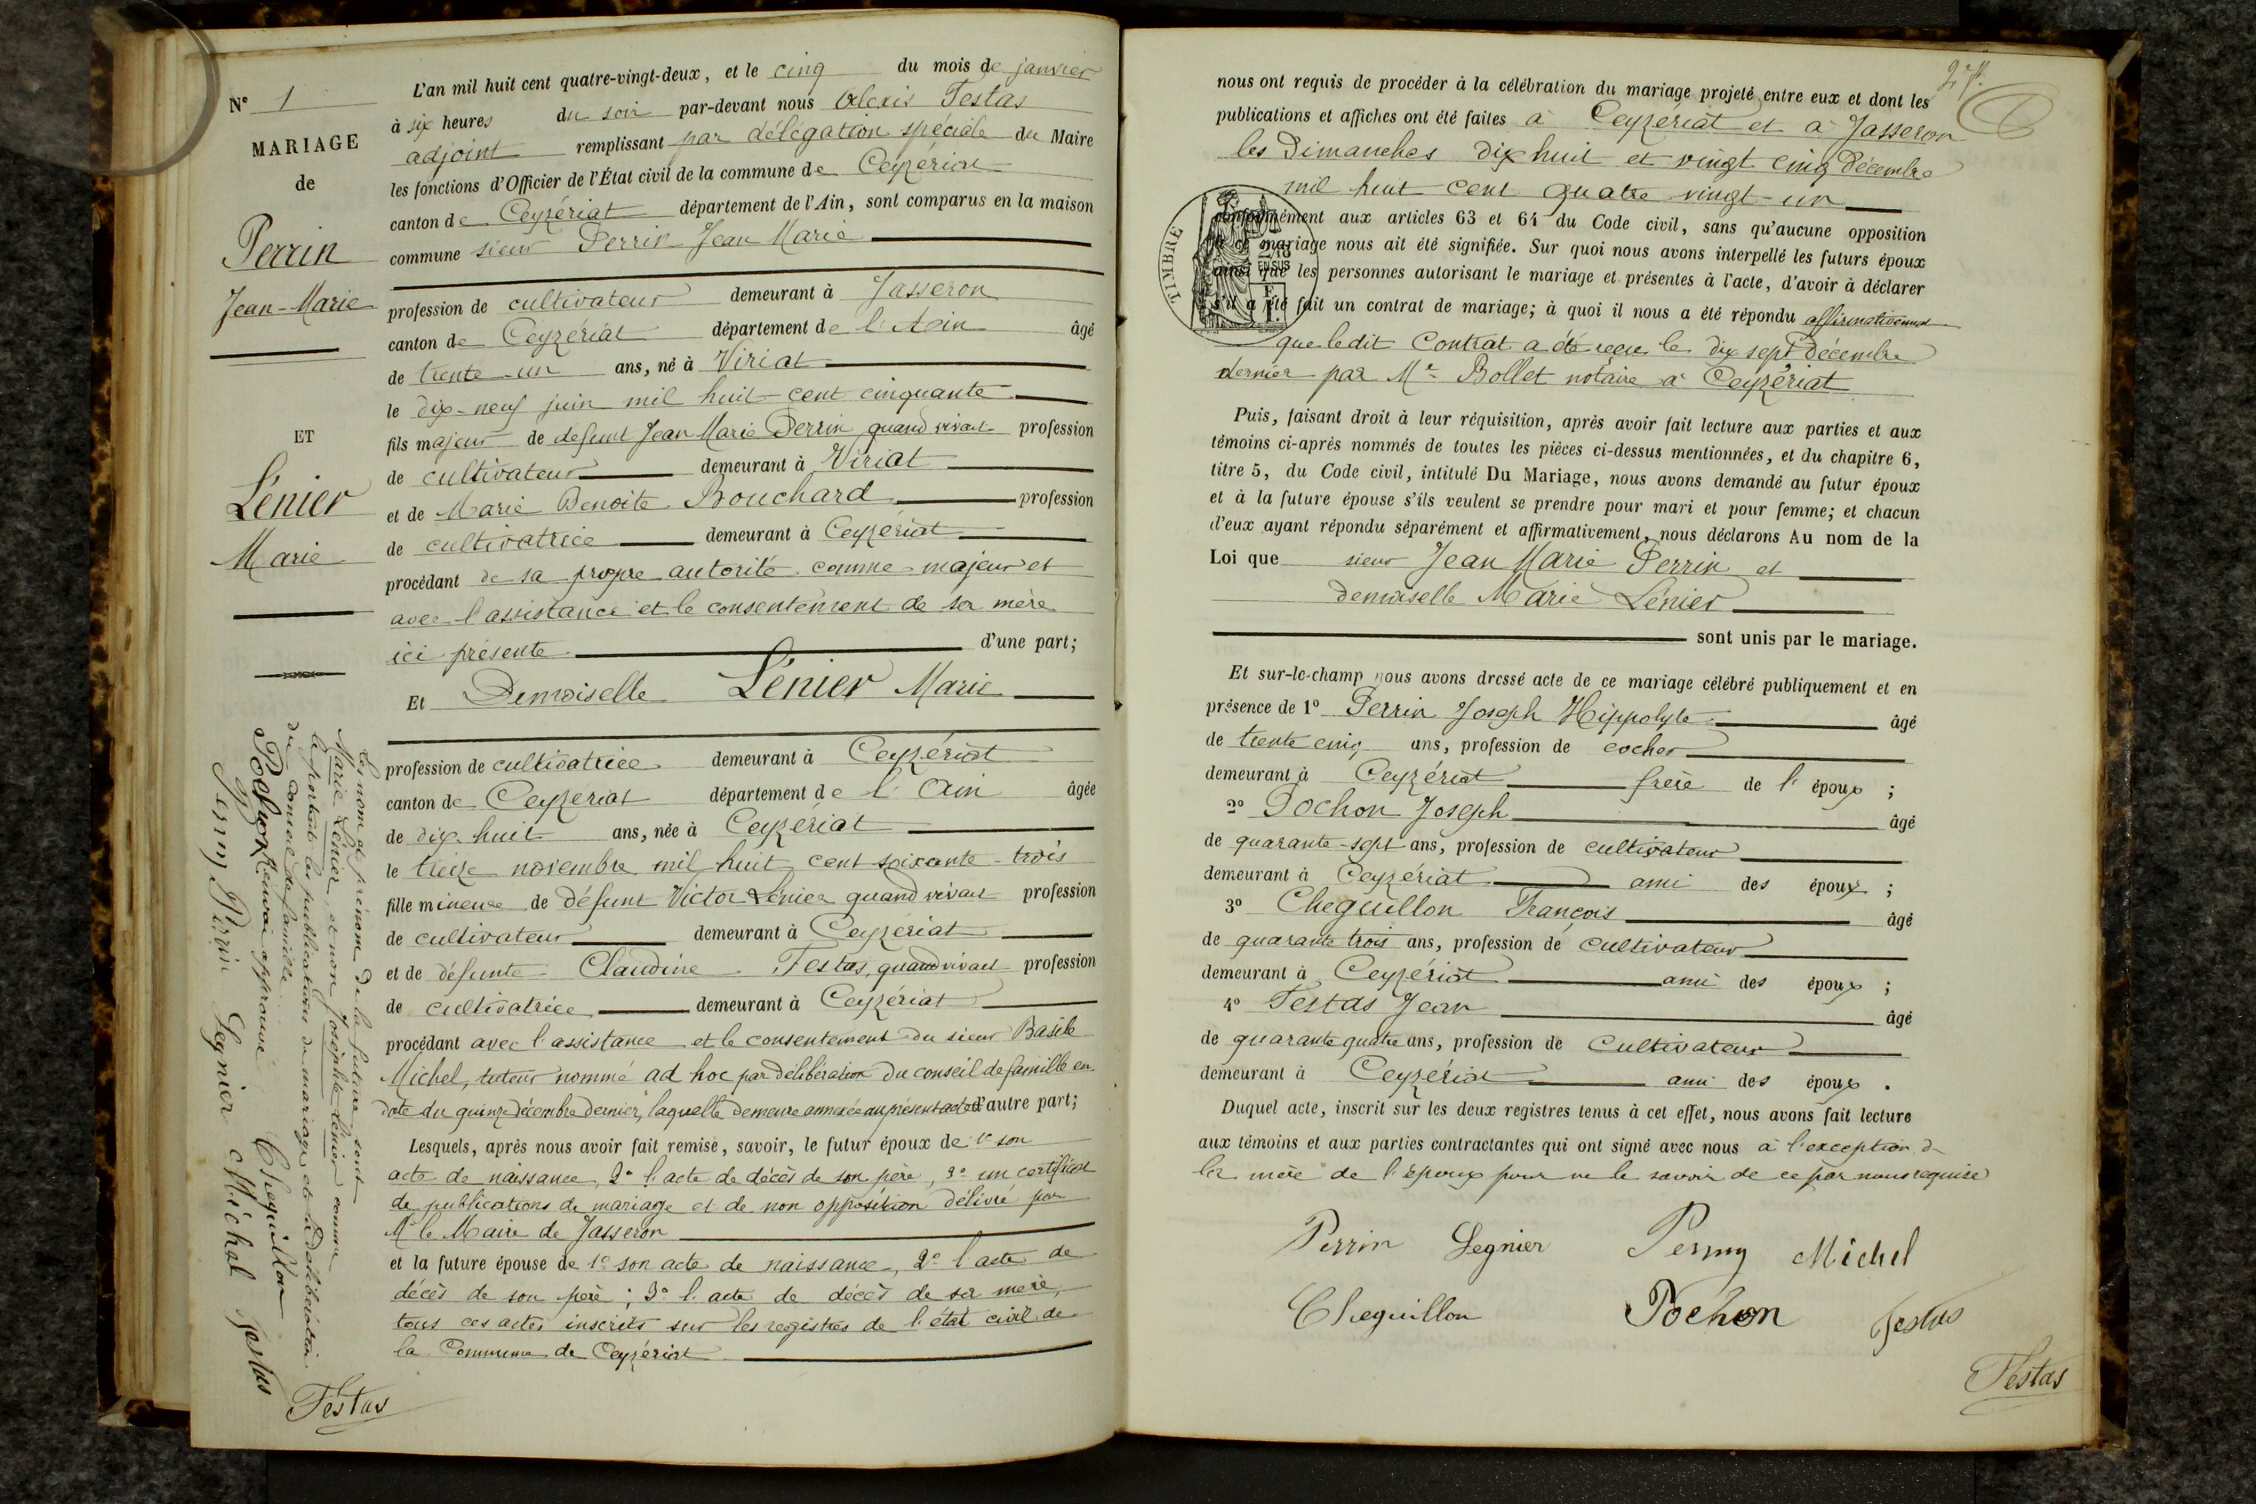 N° 1
MARIAGE
de
Perrin
Jean-Marie
ET
Lénier
Marie
L'an mil huit cent quatre-vingt-deux, et le cinq du mois de janvier
à six heures du soir par-devant nous Alexis Festas
adjoint remplissant par délégation spéciale du Maire
les fonctions d'Officier de l'État civil de la commune de Ceyzériat
canton de Ceyzériat département de l'Ain, sont comparus en la maison
commune sieur Perrin Jean Marie
profession de cultivateur demeurant à Jasseron
canton de Ceyzeriat département de l'Ain âgé
de trente-un ans, né à Viriat
le dix-neuf juin mil huit cent cinquante
fils majeur de defunt Jean Marie Perrin quand vivait profession
de cultivateur demeurant à Viriat
et de Marie Benoite Bouchard profession
de cultivatrice demeurant à Ceyzériat
procédant de sa propre autorité comme majeur et
avec l'assistance et le consentement de sa mère
ici présente d'une part;
Et Demoiselle Lénier Marie
profession de cultivatrice demeurant à Ceyzériat
canton de Ceyzeriat département de l'Ain âgée
de dix-huit ans, née à Ceyzériat
le treize novembre mil huit cent soixante-trois
fille mineure de défunt Victor Lénier quand vivait profession
de cultivateur demeurant à Ceyzériat
et de défunte Claudine Festas, quand vivait profession
de cultivatrice demeurant à Ceyzériat
procédant avec l'assistance et le consentement du sieur Basile
Michel, tuteur nommé ad hoc par délibération du conseil de famille en
date du quinze décembre dernier, laquelle demeure annexée au présent acte d'autre part;
Lesquels, après nous avoir fait remise, savoir, le futur époux de 1° son
acte de naissance, 2° l'acte de décès de son père, 3° un certificat
de publications de mariage et de non opposition délivré par
Mr le Maire de Jasseron
et la future épouse de 1° son acte de naissance, 2° l'acte de
décès de son père; 3° l'acte de décès de sa mère,
tous ces actes inscrits sur les registres de l'état civil de
la Commune de Ceyzériat
Les nom et prénom de la future sont
Marie Lénier, et non Josephte Lénier comme
le portent les publications de mariage et la délibération
du Conseil de famille.
Pochon Renvoi approuvé Cheguillon
Perrin Legnier Michel Festas
Festas
2e ff.
nous ont requis de procéder à la célébration du mariage projeté entre eux et dont les
publications et affiches ont été faites à Ceyzeriat et à Jasseron
les Dimanches dix huit et vingt cinq Décembre
mil huit cent quatre vingt-un
conformément aux articles 63 et 64 du Code civil, sans qu'aucune opposition
à ce mariage nous ait été signifiée. Sur quoi nous avons interpellé les futurs époux
ainsi que les personnes autorisant le mariage et présentes à l'acte, d'avoir à déclarer
s'il a été fait un contrat de mariage; à quoi il nous a été répondu affirmativement
que ledit Contrat a été reçu le dix sept Décembre
dernier par Me Bollet notaire à Ceyzériat
TIMBRE
EN SUS
Puis, faisant droit à leur réquisition, après avoir fait lecture aux parties et aux
témoins ci-après nommés de toutes les pièces ci-dessus mentionnées, et du chapitre 6,
titre 5, du Code civil, intitulé Du Mariage, nous avons demandé au futur époux
et à la future épouse s'ils veulent se prendre pour mari et pour femme; et chacun
d'eux ayant répondu séparément et affirmativement, nous déclarons Au nom de la
Loi que sieur Jean Marie Perrin et
demoiselle Marie Lénier
sont unis par le mariage.
Et sur-le-champ nous avons dressé acte de ce mariage célébré publiquement et en
présence de 1° Perrin Joseph Hippolyte âgé
de trente cinq ans, profession de cocher
demeurant à Ceyzériat frère de l'époux;
2° Pochon Joseph âgé
de quarante-sept ans, profession de cultivateur
demeurant à Ceyzériat ami des époux;
3° Cheguillon François âgé
de quarante trois ans, profession de cultivateur
demeurant à Ceyzériat ami des époux;
4° Festas Jean âgé
de quarante quatre ans, profession de Cultivateur
demeurant à Ceyzériat ami des époux.
Duquel acte, inscrit sur les deux registres tenus à cet effet, nous avons fait lecture
aux témoins et aux parties contractantes qui ont signé avec nous à l'exception de
la mère de l'époux pour ne le savoir de ce par nous requise
Perrin Legnier Michel
Cheguillon Pochon Festas
Festas